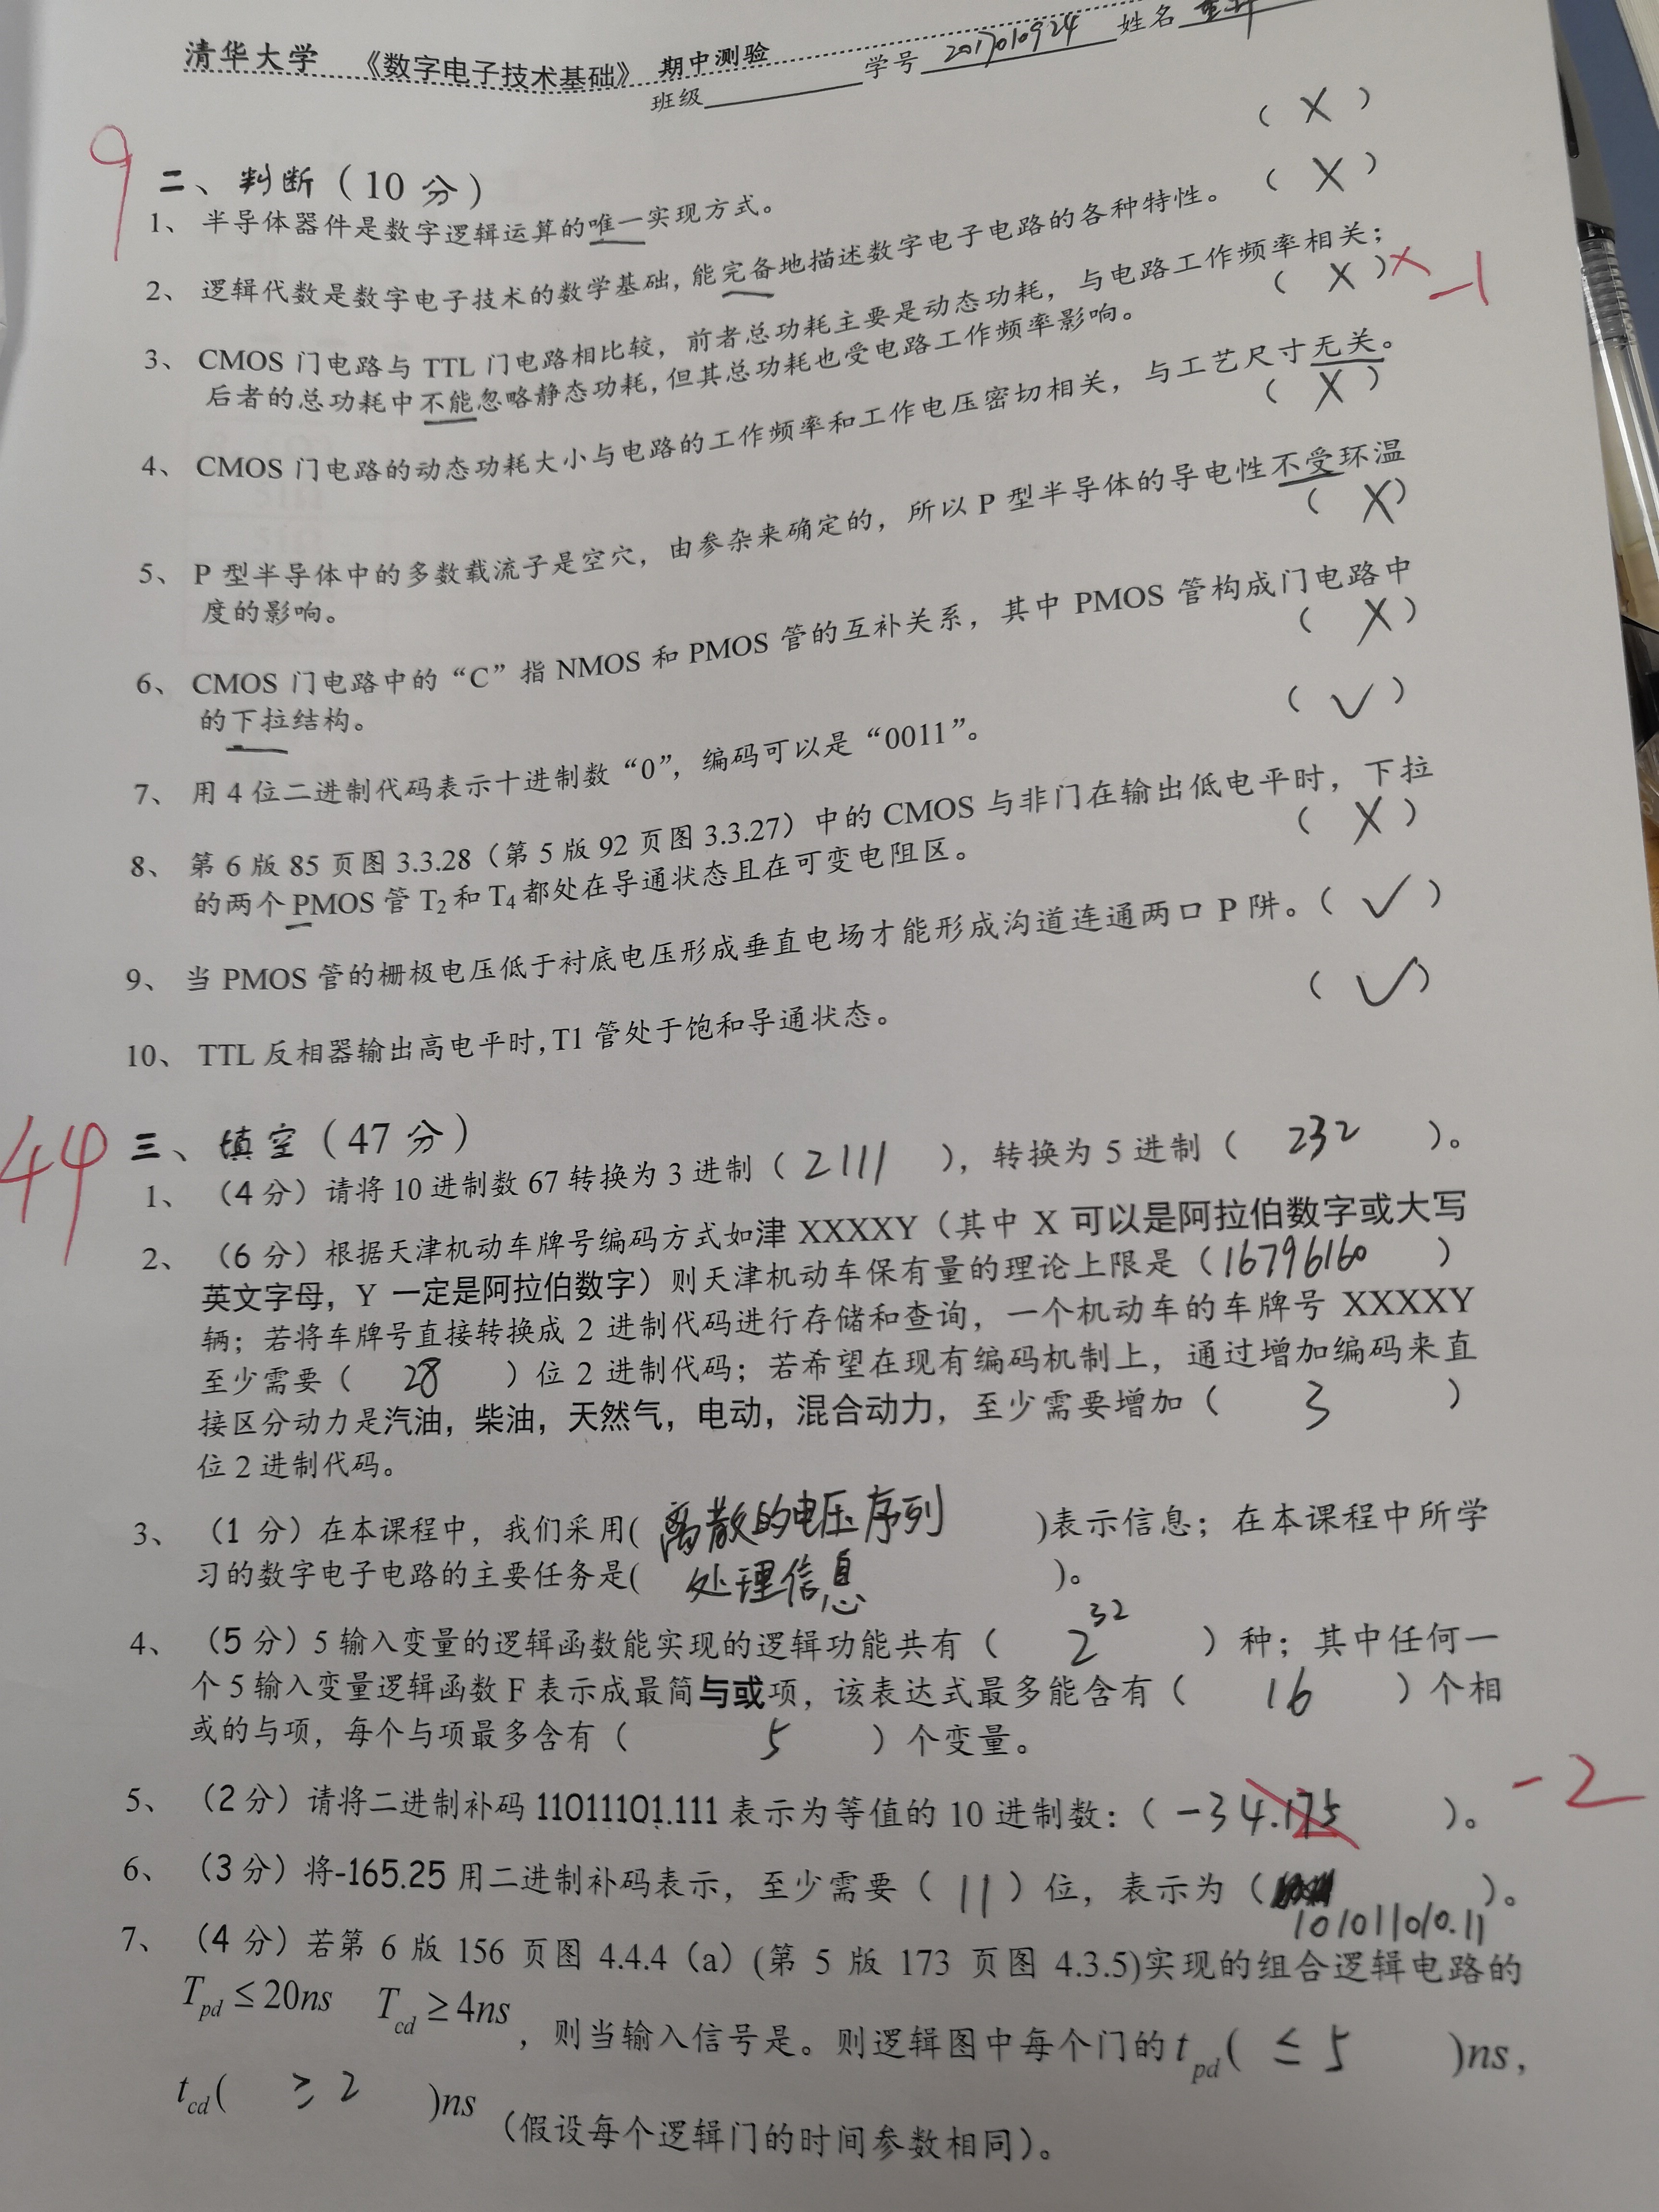 清华大学 《数字电子技术基础》 期中测验
班级 学号 2017010924 姓名
9
二、判断（10 分）
1、 半导体器件是数字逻辑运算的唯一实现方式。 （ X ）
2、 逻辑代数是数字电子技术的数学基础，能完备地描述数字电子电路的各种特性。 （ X ）
3、 CMOS 门电路与 TTL 门电路相比较，前者总功耗主要是动态功耗，与电路工作频率相关；
后者的总功耗中不能忽略静态功耗，但其总功耗也受电路工作频率影响。 （ X ） X -1
4、 CMOS 门电路的动态功耗大小与电路的工作频率和工作电压密切相关，与工艺尺寸无关。
（ X ）
5、 P 型半导体中的多数载流子是空穴，由参杂来确定的，所以 P 型半导体的导电性不受环温
度的影响。 （ X ）
6、 CMOS 门电路中的“C”指 NMOS 和 PMOS 管的互补关系，其中 PMOS 管构成门电路中
的下拉结构。 （ X ）
7、 用 4 位二进制代码表示十进制数“0”，编码可以是“0011”。 （ ✓ ）
8、 第 6 版 85 页图 3.3.28（第 5 版 92 页图 3.3.27）中的 CMOS 与非门在输出低电平时，下拉
的两个 PMOS 管 T2 和 T4 都处在导通状态且在可变电阻区。 （ X ）
9、 当 PMOS 管的栅极电压低于衬底电压形成垂直电场才能形成沟道连通两口 P 阱。（ ✓ ）
10、 TTL 反相器输出高电平时，T1 管处于饱和导通状态。 （ ✓ ）
44
三、填空（47 分）
1、 （4 分）请将 10 进制数 67 转换为 3 进制（ 2111 ），转换为 5 进制（ 232 ）。
2、 （6 分）根据天津机动车牌号编码方式如津 XXXXY（其中 X 可以是阿拉伯数字或大写
英文字母，Y 一定是阿拉伯数字）则天津机动车保有量的理论上限是（16796160 ）
辆；若将车牌号直接转换成 2 进制代码进行存储和查询，一个机动车的车牌号 XXXXY
至少需要（ 28 ）位 2 进制代码；若希望在现有编码机制上，通过增加编码来直
接区分动力是汽油，柴油，天然气，电动，混合动力，至少需要增加（ 3 ）
位 2 进制代码。
3、 （1 分）在本课程中，我们采用( 离散的电压序列 )表示信息；在本课程中所学
习的数字电子电路的主要任务是( 处理信息 )。
4、 （5 分）5 输入变量的逻辑函数能实现的逻辑功能共有（ 2^32 ）种；其中任何一
个 5 输入变量逻辑函数 F 表示成最简与或项，该表达式最多能含有（ 16 ）个相
或的与项，每个与项最多含有（ 5 ）个变量。
5、 （2 分）请将二进制补码 11011101.111 表示为等值的 10 进制数：（ -34.175 ）。 -2
6、 （3 分）将-165.25 用二进制补码表示，至少需要（ 11 ）位，表示为（ ）。
101011010.11
7、 （4 分）若第 6 版 156 页图 4.4.4（a）(第 5 版 173 页图 4.3.5)实现的组合逻辑电路的
Tpd ≤ 20ns Tcd ≥ 4ns ，则当输入信号是。则逻辑图中每个门的 tpd( ≤ 5 )ns，
tcd( ≥ 2 )ns （假设每个逻辑门的时间参数相同）。